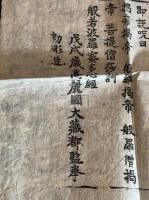 即説呪曰
揭帝揭帝 般羅揭帝 般羅僧揭
帝 菩提僧莎訶
般若波羅蜜多心經
戊戌歲高麗國大藏都監奉
勅彫造